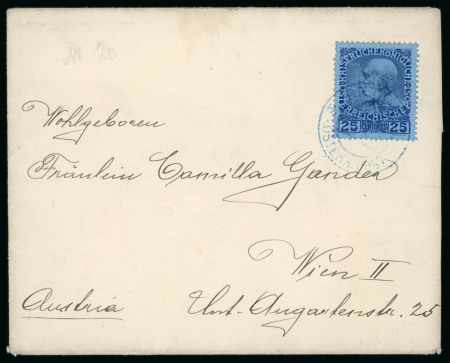 Nr 20
25 25
Wohlgeboren
Fräulein Camilla Gander
Wien II
Austria
Unt. Augartenstr. 25